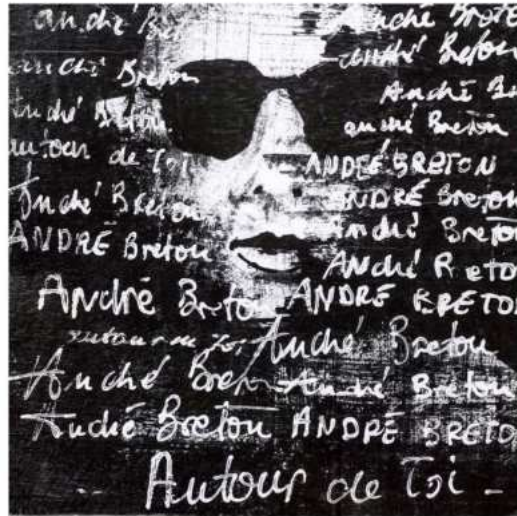 andré Breton André Breton
André Breton André Breton
André Breton André
André Breton André Breton
autour de Toi ANDRÉ BRETON
André Breton ANDRÉ Breton
ANDRÉ Breton André Breton
André Breton
André Breton ANDRÉ BRETON
autour de Toi André Breton
André Breton André Breton
André Breton ANDRÉ BRETON
Autour de Toi